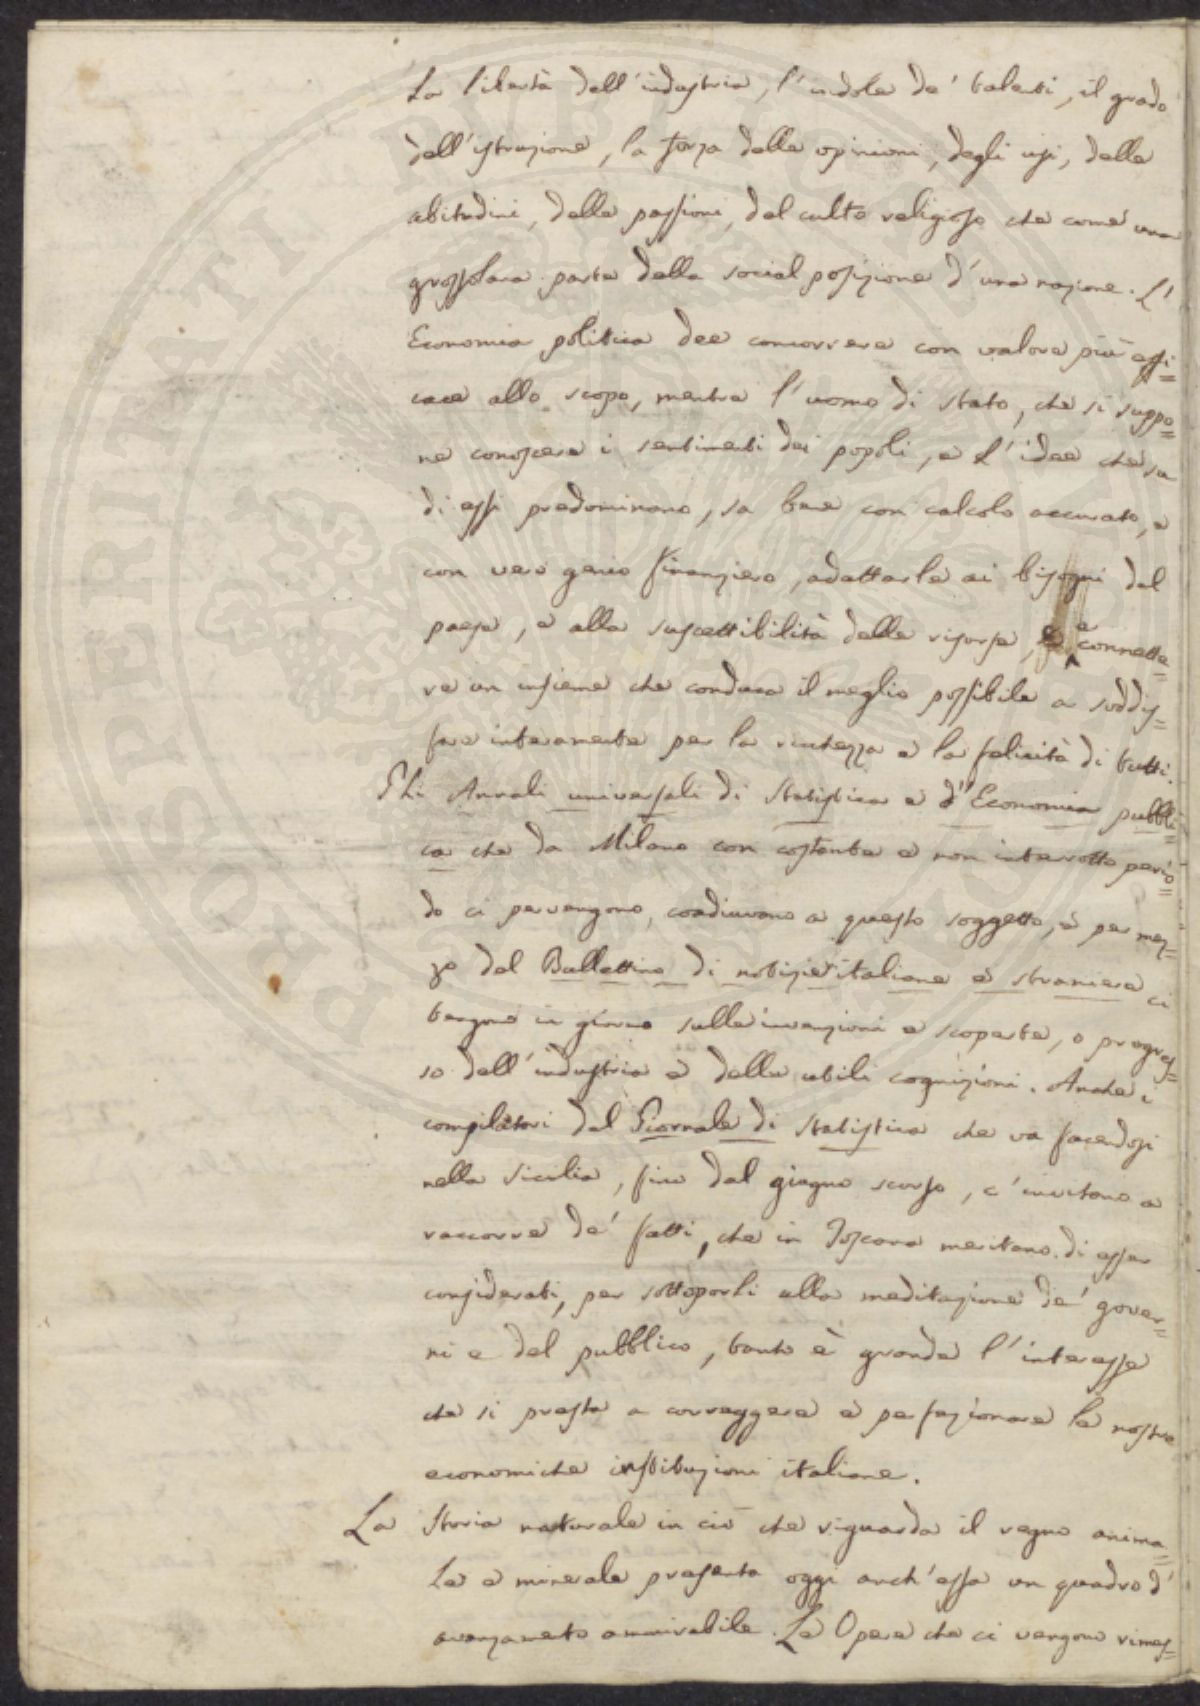 La libertà dell'industria, l'indole de' talenti, il grado
dell'istruzione, la forza delle opinioni, degli usi, delle
abitudini, delle passioni, del culto religioso che come una
grossolana parte della social posizione d'una nazione. L'
Economia politica dee concorrere con valore più effi=
cace allo scopo, mentre l'uomo di stato, che si suppo=
ne conoscere i sentimenti dei popoli, e l'idee che su
di essi predominano, sa bene con calcolo accurato, e
con vero genio finanziero, adattarle ai bisogni del
paese, e alla suscettibilità delle risorse, e connette=
re un insieme che conduca il meglio possibile a soddis=
fare interamente per la rictezza e la felicità di tutti.
Gli Annali universali di Statistica e d'Economia pubbli=
ca che da Milano con costante e non interrotto perio=
do ci pervengono, coadiuvano a questo soggetto, e per mez=
zo del Bullettino di notizie italiane e straniere ci
tengono in giorno sulle invenzioni e scoperte, o progres=
so dell'industria e delle utili cognizioni. Anche i
compilatori del Giornale di Statistica che va facendosi
nella Sicilia, fino dal giugno scorso, c'invitano a
raccorre de' fatti, che in Toscana meritano di esser
considerati, per sottoporli alla meditazione de' gover=
ni e del pubblico, tanto è grande l'interesse
che si presta a correggere e perfezionare le nostre
economiche instituzioni italiane.
La Storia naturale in ciò che riguarda il regno anima=
le e minerale presenta oggi anch'essa un quadro d'
avanzamento ammirabile. Le Opere che ci vengono rimes=
PROSPERITATI PUBLICAE